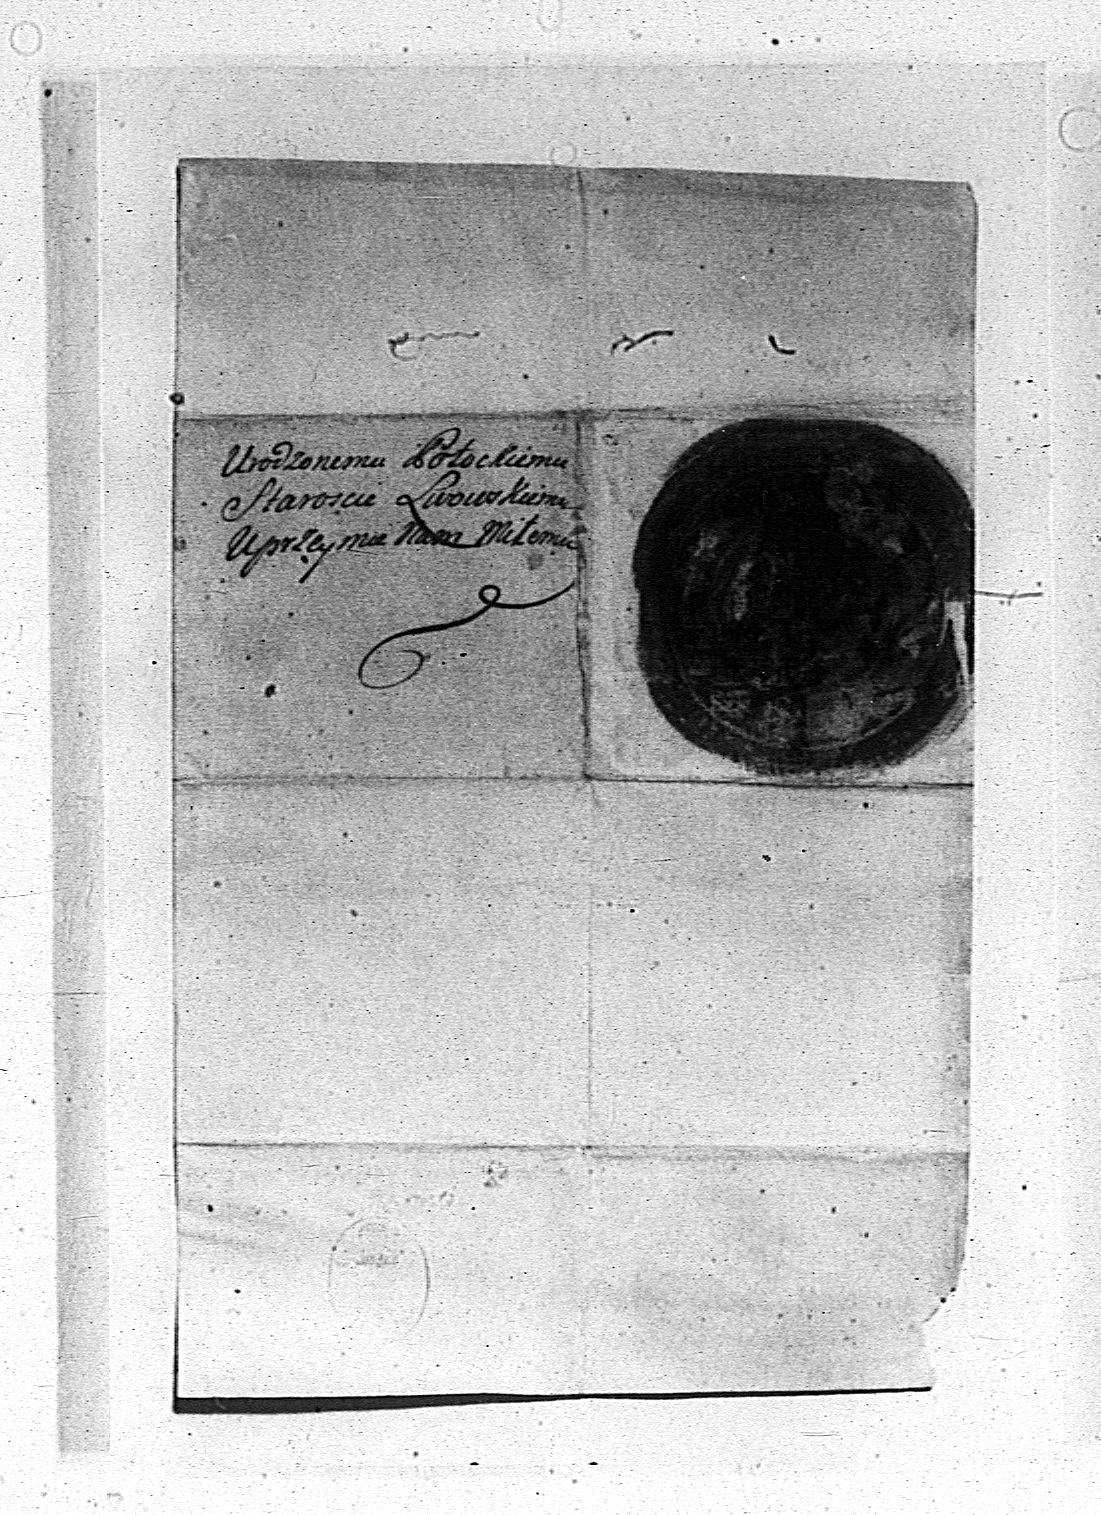 Urodzonemu Potockiemu
Staroscie Lwowskiemu
Uprzeymie Nam Miłemu